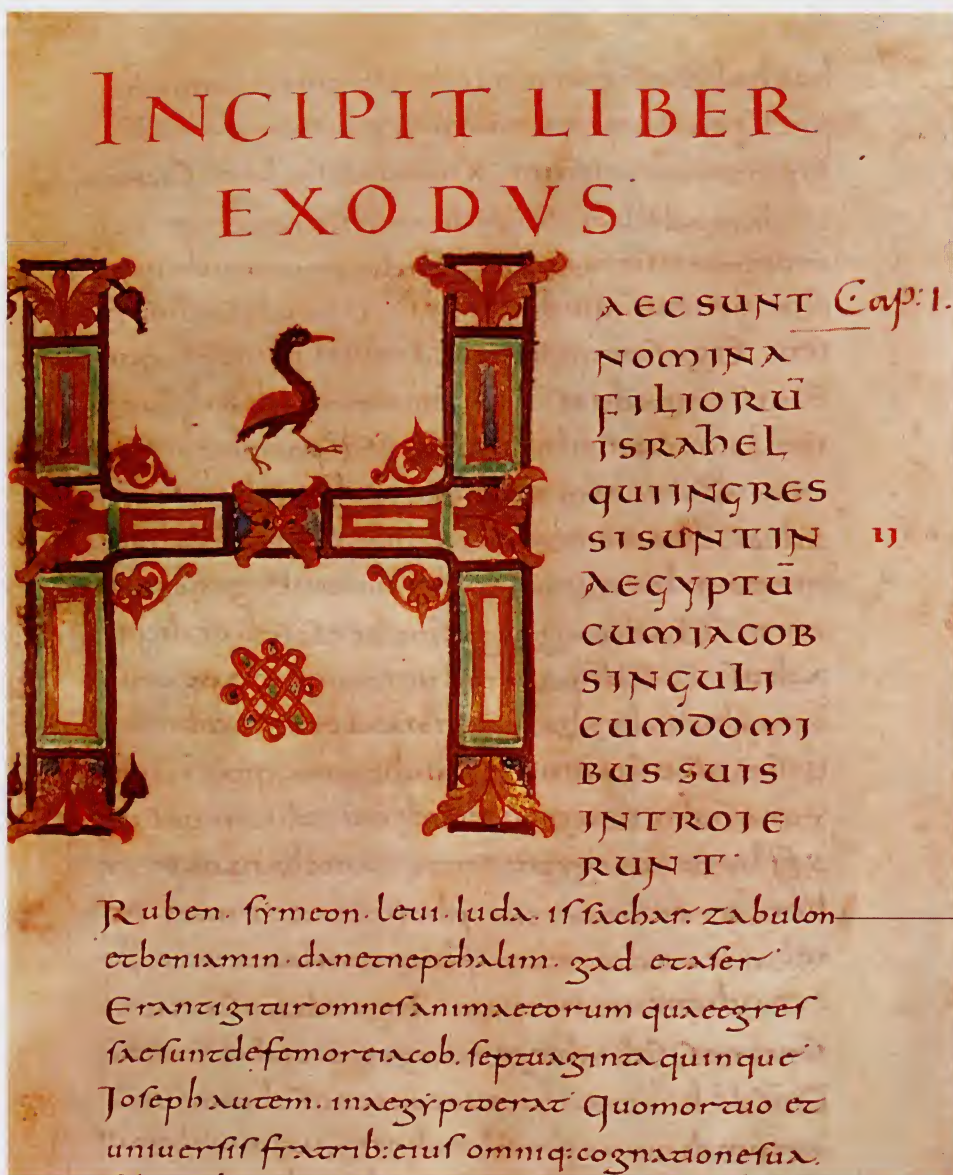 INCIPIT LIBER
EXODVS
HAEC SUNT Cap: 1.
NOMINA
FILIORŪ
ISRAhEL
QUIINGRES
SISUNTIN IJ
AEGYPTŪ
CUMIACOB
SINGULI
CUMDOMI
BUS SUIS
INTROIE
RUNT
Ruben. symeon. leui. iuda. issachar. zabulon
etbeniamin. danetnepthalim. gad etaser
Erantigituromnesanimaeeorum quaeegres
saesuntdefemoreiacob. septuaginta quinque
Ioseph autem. inaegyptoerat Quomortuo et
uniuersis fratrib: eius omniq: cognationesua.